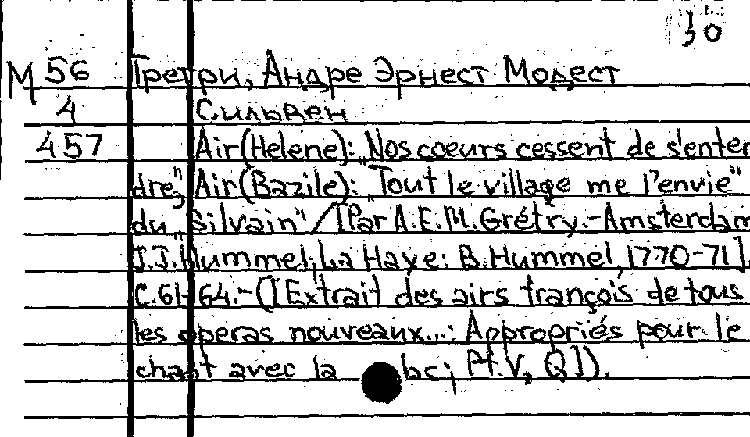 30
М 56 Гретри, Андре Эрнест Модест
4 Сильвен
457 Air(Helene): "Nos coeurs cessent de s'enten
dre", Air(Bazile): "Tout le village me l'envie"
du "Silvain" / [Par A.E.M.Grétry.-Amsterdam
J.J.Hummel; La Haye: B.Hummel, 1770-71].
C.61-64.-([Extrait des airs françois de tous
les operas nouveaux...: Appropriés pour le
chant avec la bc; Pt. V, Q]).